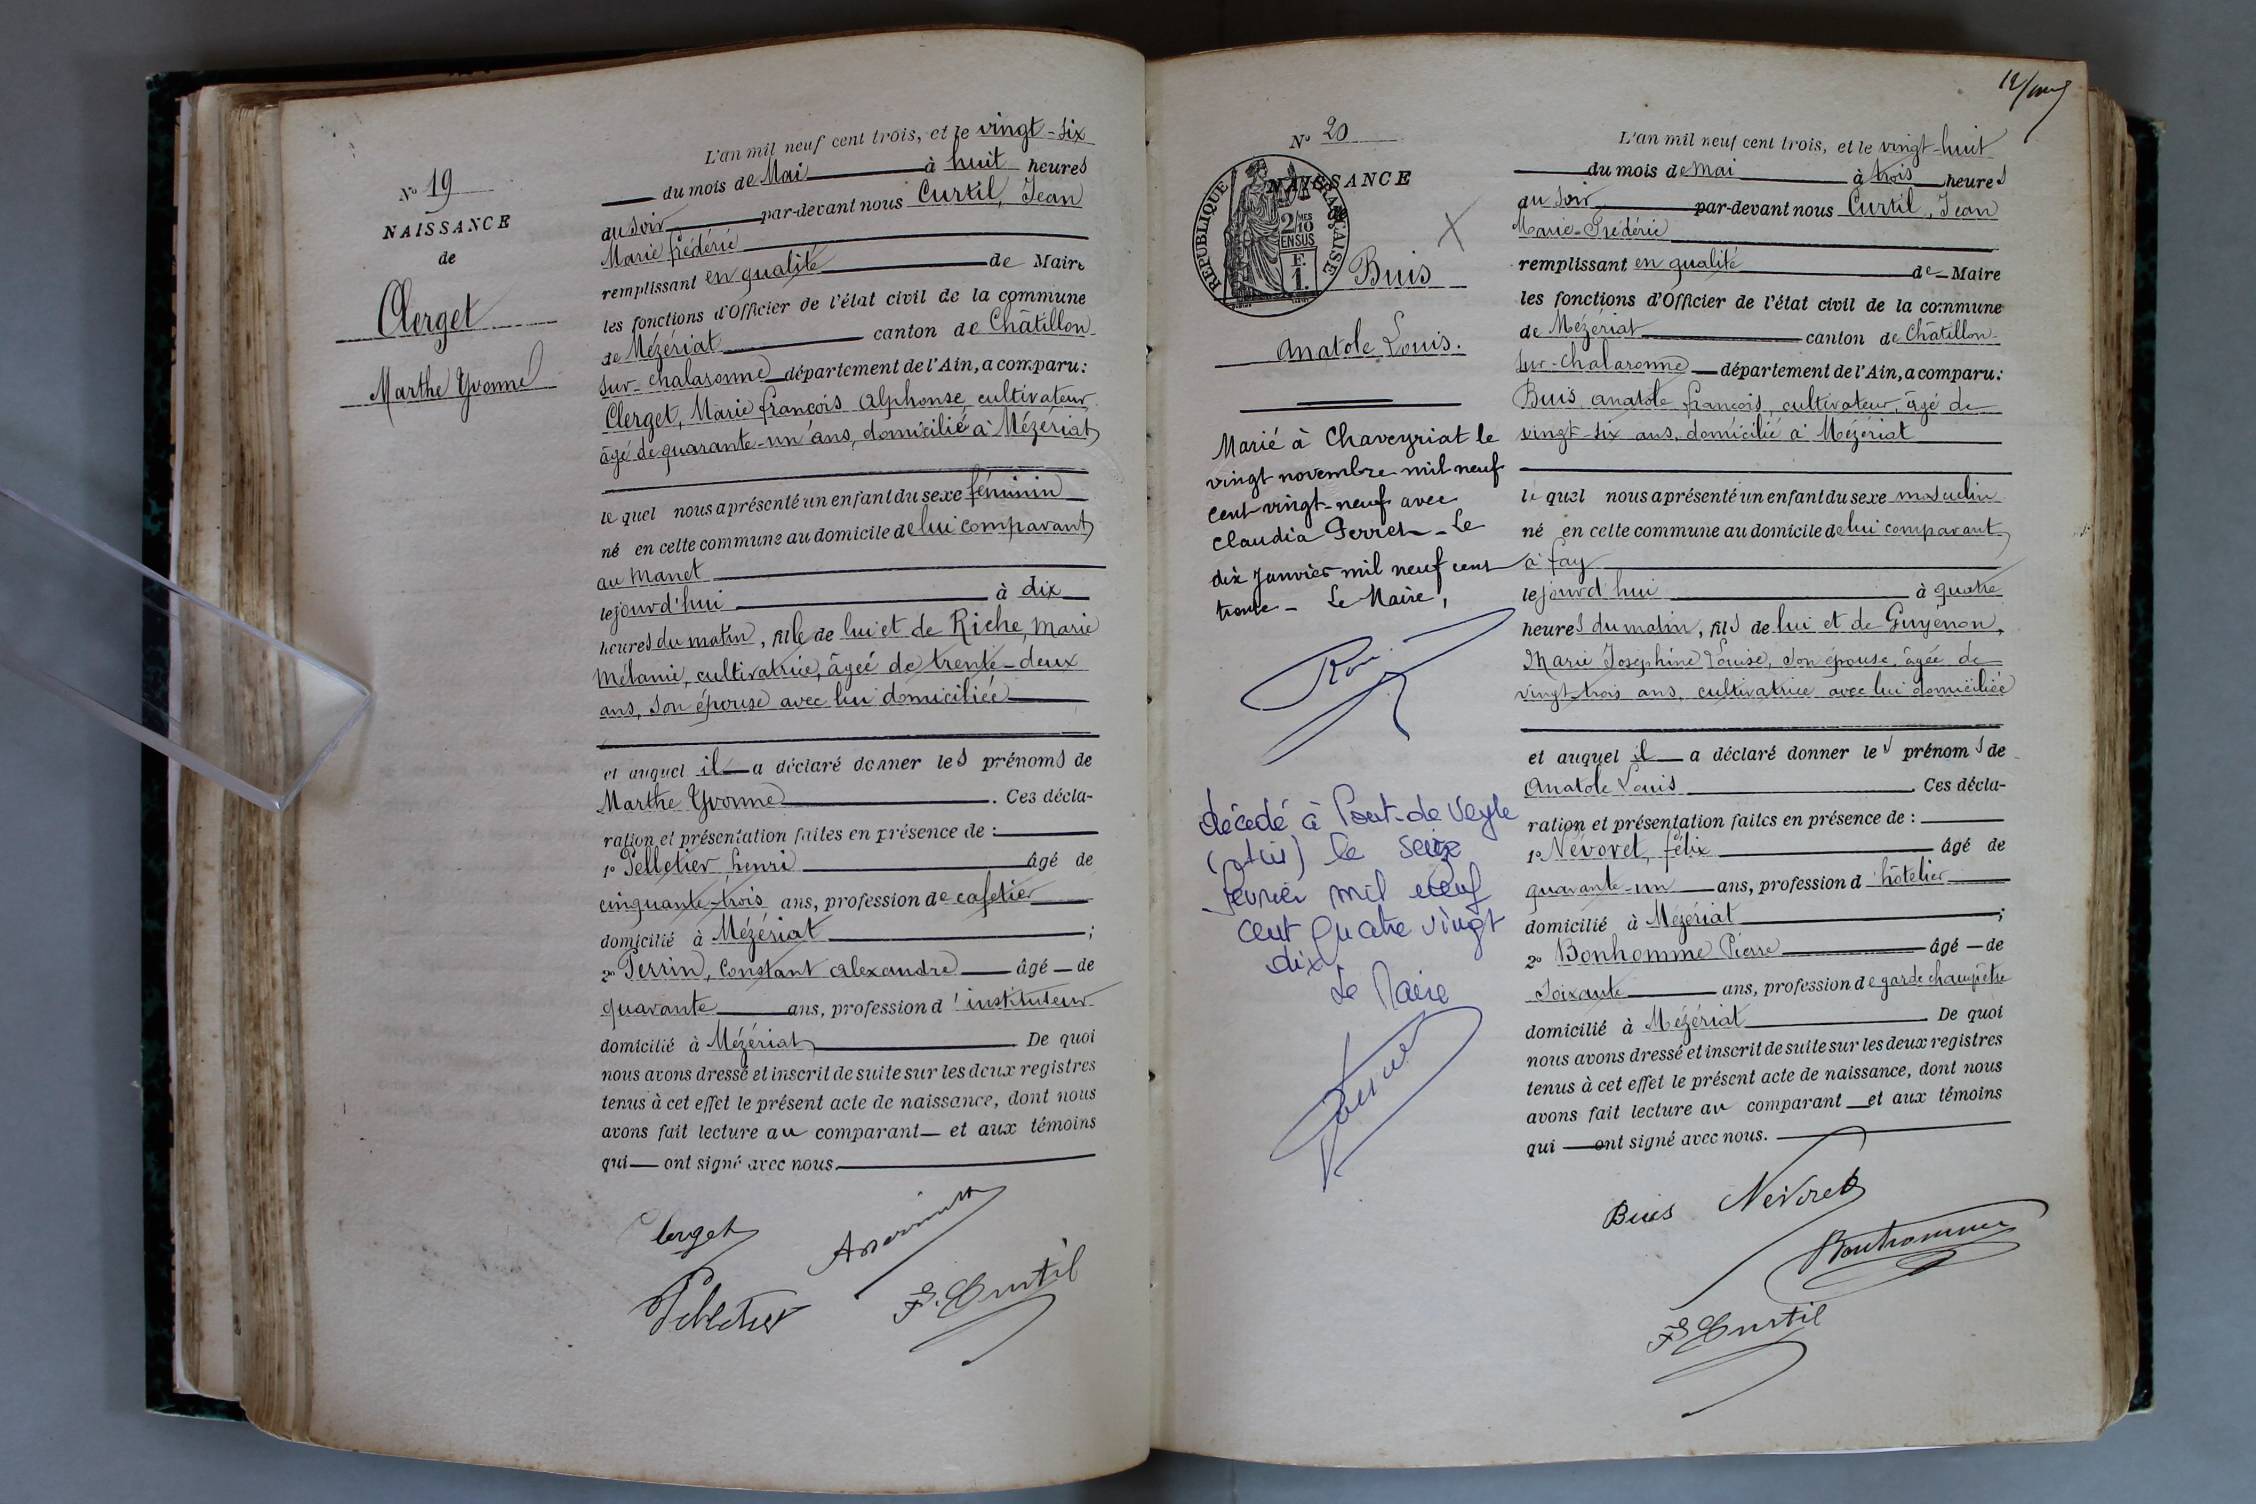 N° 19
NAISSANCE
de
Clerget
Marthe Yvonne
L'an mil neuf cent trois, et le vingt-six
du mois de Mai à huit heures
du soir par-devant nous Curtil, Jean
Marie Frédéric
remplissant en qualité de Maire
les fonctions d'Officier de l'état civil de la commune
de Mézériat canton de Châtillon
sur-chalaronne département de l'Ain, a comparu:
Clerget, Marie françois Alphonse, cultivateur
âgé de quarante-un ans, domicilié à Mézériat
le quel nous a présenté un enfant du sexe féminin
né en cette commune au domicile de lui comparant
au Manet
le jourd'hui à dix
heures du matin, fille de lui et de Riche, Marie
Mélanie, cultivatrice, âgée de trente-deux
ans, son épouse avec lui domiciliée
et auquel il a déclaré donner les prénoms de
Marthe Yvonne. Ces décla-
ration et présentation faites en présence de :
1° Pelletier henri âgé de
cinquante-trois ans, profession de cafetier
domicilié à Mézériat ;
2° Perrin, Constant alexandre âgé de
quarante ans, profession d'instituteur
domicilié à Mézériat De quoi
nous avons dressé et inscrit de suite sur les deux registres
tenus à cet effet le présent acte de naissance, dont nous
avons fait lecture au comparant et aux témoins
qui ont signé avec nous.
Clerget
Pelletier F. Curtil
12/
N° 20
NAISSANCE
RÉPUBLIQUE FRANÇAISE
2/10 MES
EN SUS
F.
1.
Buis
Anatole Louis.
Marié à Chaveyriat le
vingt novembre mil neuf
cent vingt-neuf avec
Claudia Perret - Le
dix Janvier mil neuf cent
trente - Le Maire,
décédé à Pont-de-Veyle
(Ain) le seize
février mil neuf
cent quatre vingt
dix
Le Maire
L'an mil neuf cent trois, et le vingt-huit
du mois de mai à trois heures
du soir par-devant nous Curtil, Jean
Marie-Frédéric
remplissant en qualité de Maire
les fonctions d'Officier de l'état civil de la commune
de Mézériat canton de Châtillon-
sur-chalaronne département de l'Ain, a comparu:
Buis anatole françois, cultivateur, âgé de
vingt-six ans, domicilié à Mézériat
le quel nous a présenté un enfant du sexe masculin
né en cette commune au domicile de lui comparant
à fay
le jourd'hui à quatre
heures du matin, fils de lui et de Guyénon,
Marie Joséphine Louise, son épouse, âgée de
vingt-trois ans, cultivatrice avec lui domiciliée
et auquel il a déclaré donner les prénoms de
Anatole Louis. Ces décla-
ration et présentation faites en présence de :
1° Névoret, félix âgé de
quarante-un ans, profession d'hôtelier
domicilié à Mézériat ;
2° Bonhomme Pierre âgé de
soixante ans, profession de garde champêtre
domicilié à Mézériat. De quoi
nous avons dressé et inscrit de suite sur les deux registres
tenus à cet effet le présent acte de naissance, dont nous
avons fait lecture au comparant et aux témoins
qui ont signé avec nous.
Buis Névoret
Bonhomme
F Curtil